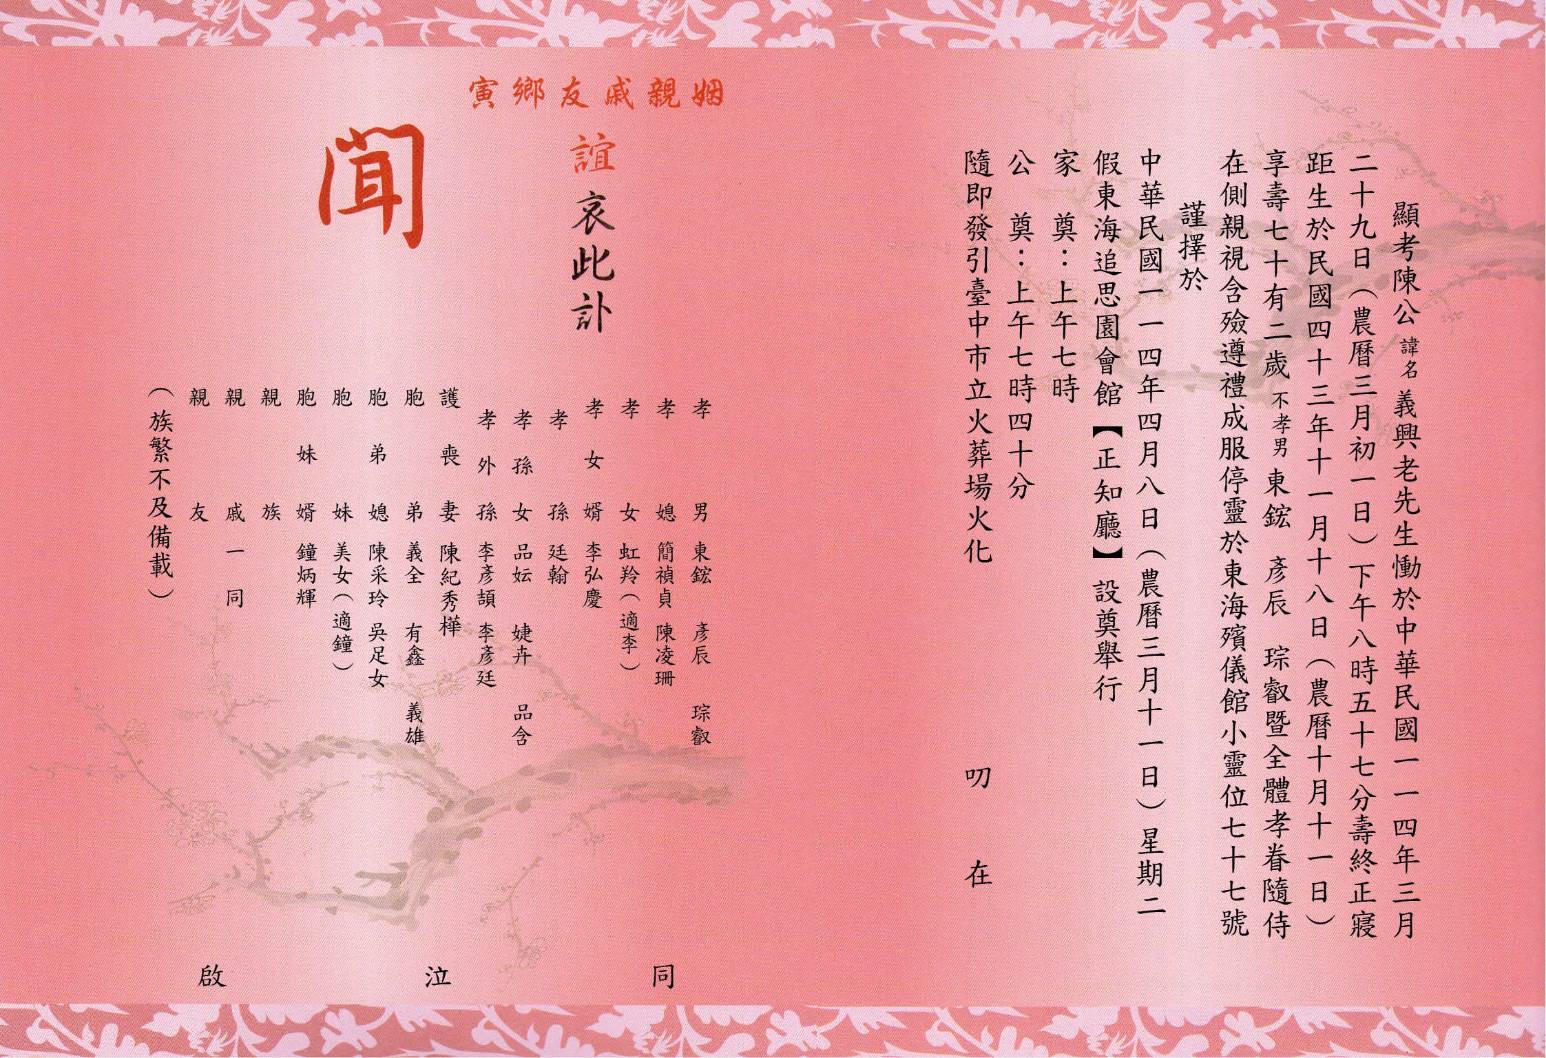 顯考陳公諱名義興老先生慟於中華民國一一四年三月
二十九日（農曆三月初一日）下午八時五十七分壽終正寢
距生於民國四十三年十一月十八日（農曆十月十一日）
享壽七十有二歲不孝男東鋐 彥辰 琮叡暨全體孝眷隨侍
在側親視含殮遵禮成服停靈於東海殯儀館小靈位七十七號
謹擇於
中華民國一一四年四月八日（農曆三月十一日）星期二
假東海追思園會館【正知廳】設奠舉行
家 奠：上午七時
公 奠：上午七時四十分
隨即發引臺中市立火葬場火化
叨在
姻親戚友鄉寅
誼哀此訃
聞
孝男 東鋐 彥辰 琮叡
孝媳 簡禎貞 陳凌珊
孝女 虹羚（適李）
孝女婿 李弘慶
孝孫 廷翰
孝孫女 品妘 婕卉 品含
孝外孫 李彥頡 李彥廷
護喪妻 陳紀秀樺
胞弟 義全 有鑫 義雄
胞弟媳 陳采玲 吳足女
胞妹 美女（適鐘）
胞妹婿 鐘炳輝
親族
親戚一同
親友
（族繁不及備載）
同泣啟